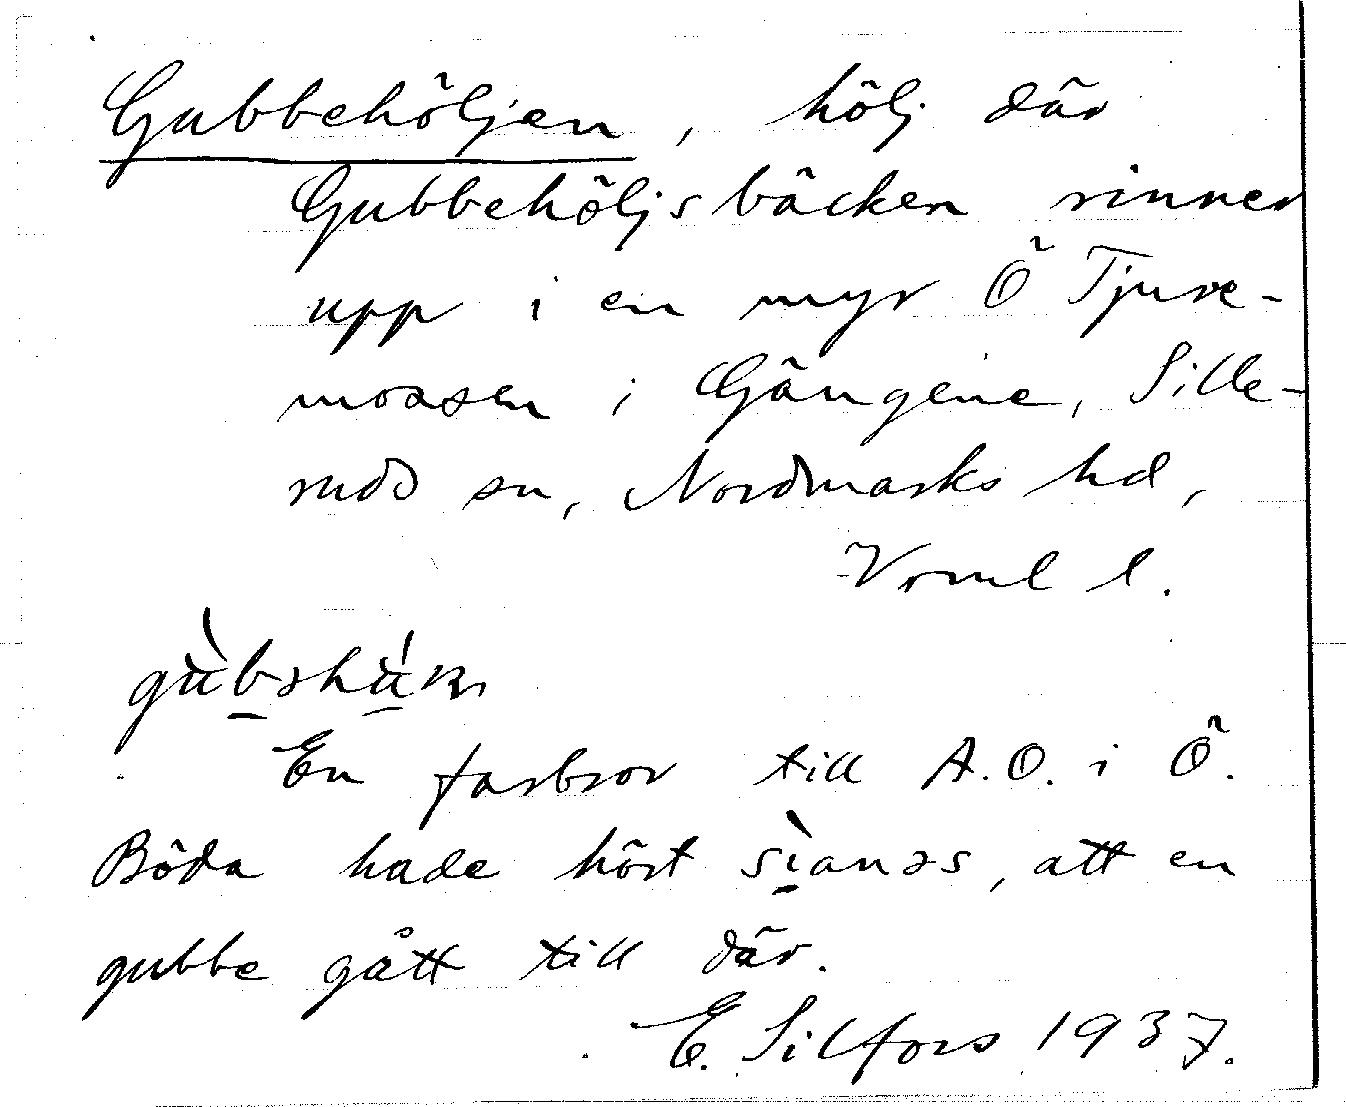 Gubbehöljen, hölj där
Gubbehöljsbäcken rinner
upp i en myr Ö Tjure-
mossen i Gängene, Sille-
rud sn, Nordmarks hd,
Vrml l.
En farbror till A.O. i Ö.
Böda hade hört, att en
gubbe gått till där.
E. Silfors 1937.